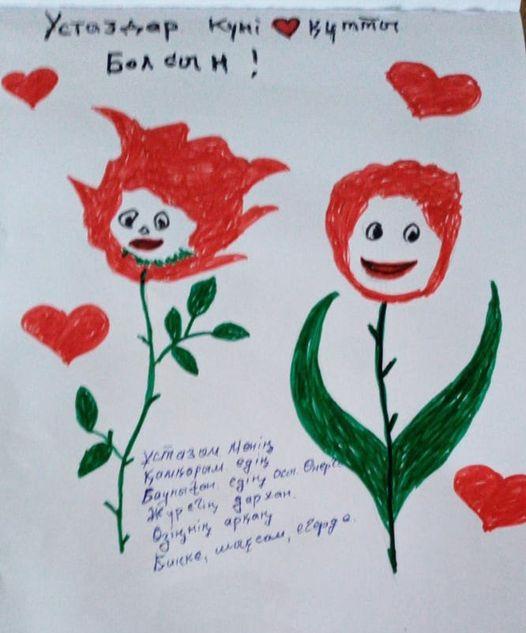 Ұстаздар күні құтты
Болсын !
Ұстазым Менің
Қамқорым едің
Баулыған едің осы Өнерге
Жүрегің дархан.
Өзіңнің арқаң
Биікке, шықсам, егерде.